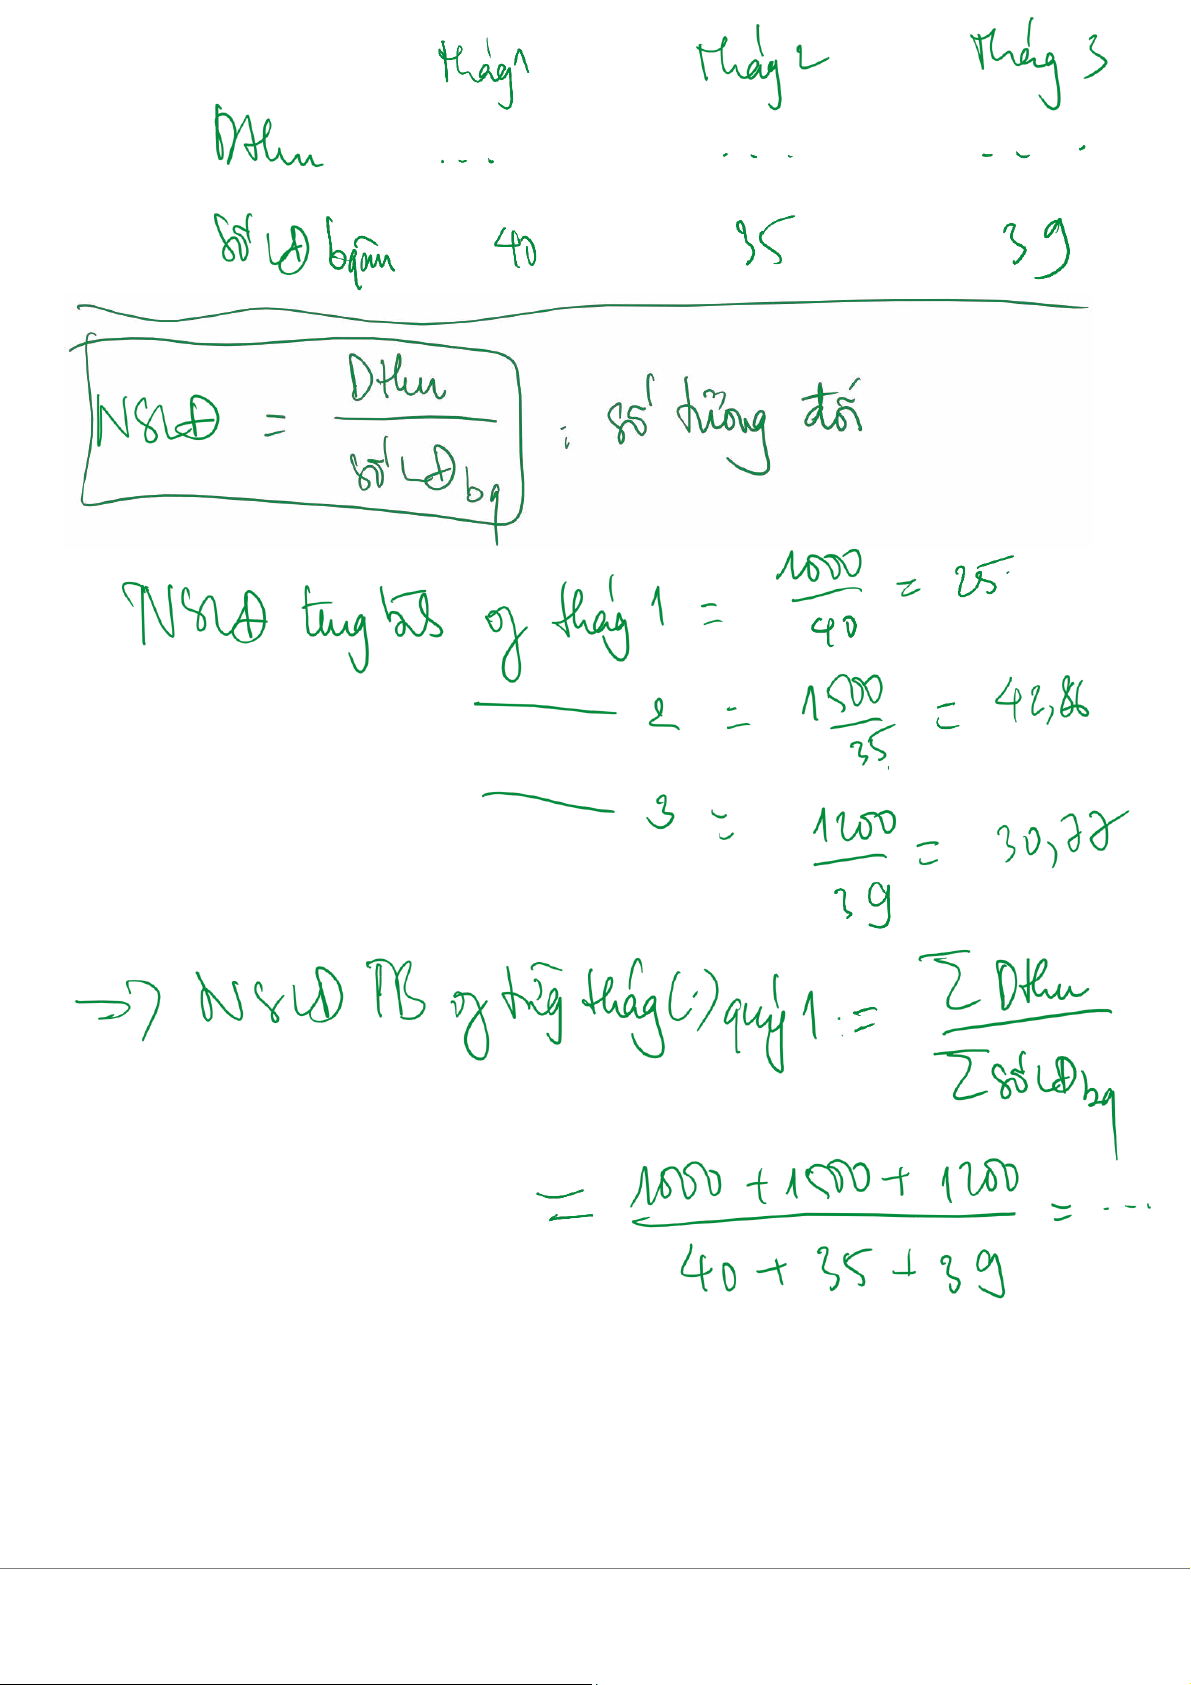 thág 1 thág 2 thág 3
Dthu ... ... ...
số LĐ bquân 40 35 39
NSLĐ = Dthu / số LĐ bq : số tương đối
NSLĐ tug bh of thág 1 = 1000 / 40 = 25
2 = 1500 / 35 = 42,86
3 = 1200 / 39 = 30,77
→ NSLĐ TB of từg thág (.) quý 1 = Σ Dthu / Σ số LĐ bq
= 1000 + 1500 + 1200 / 40 + 35 + 39 = ...